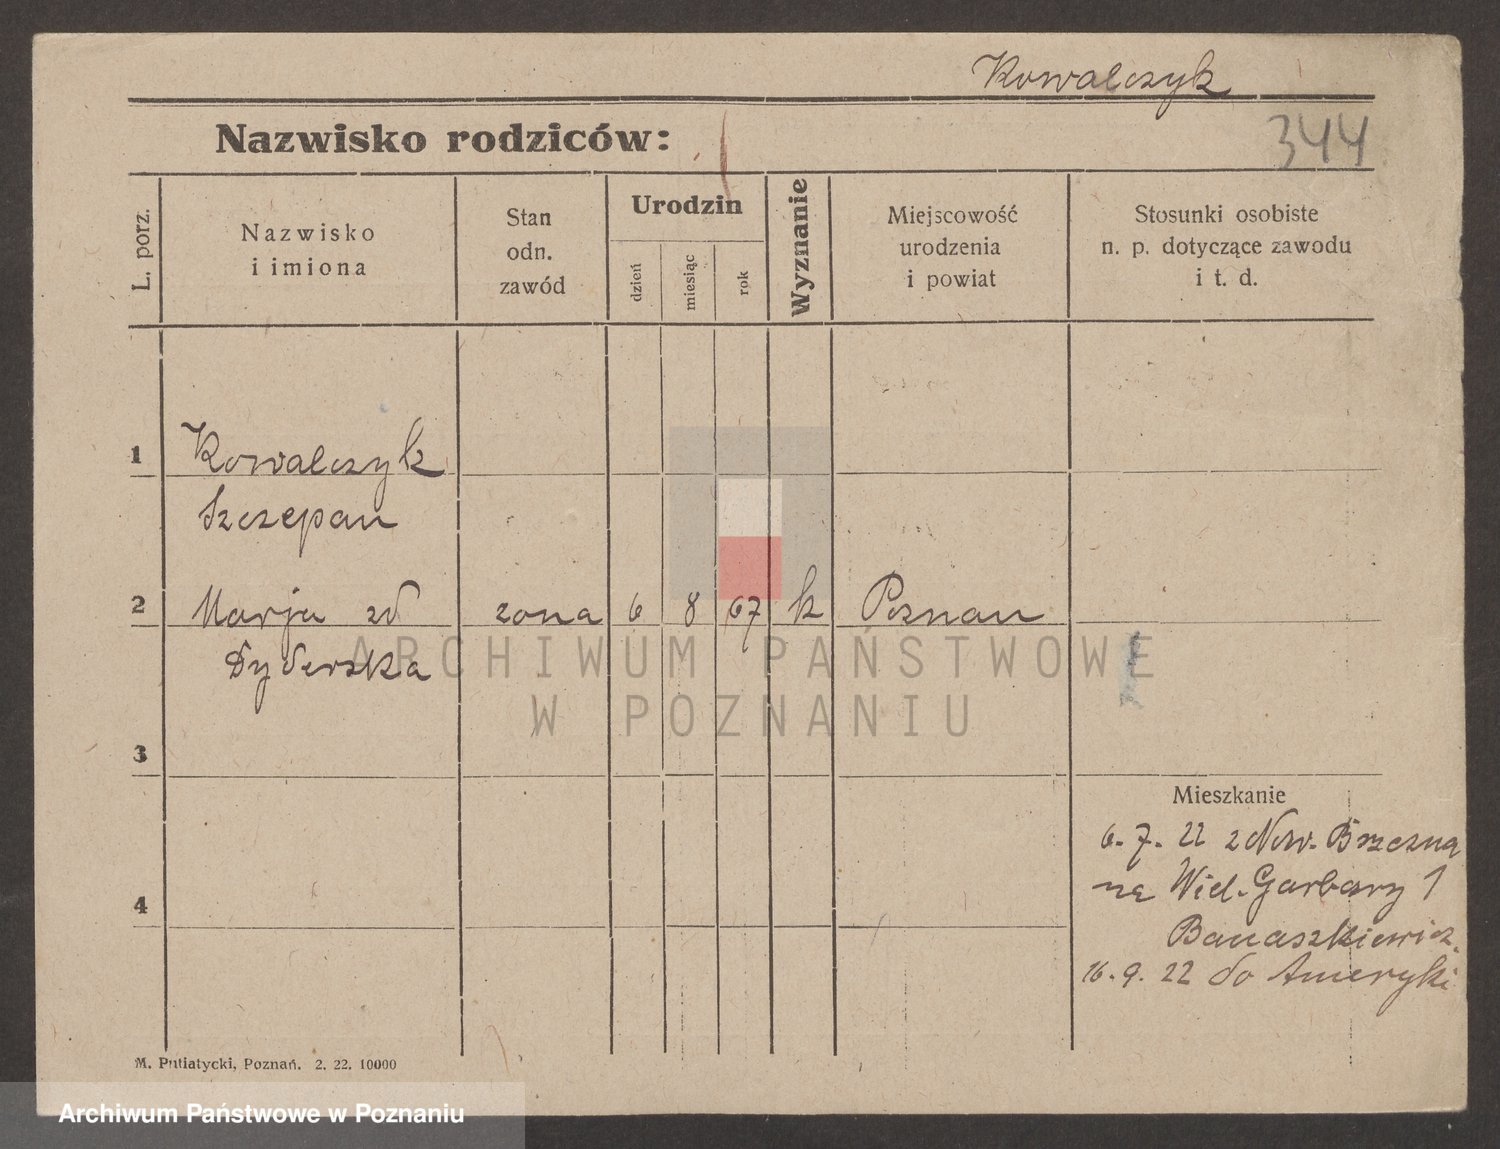 Kowalczyk
344
Nazwisko rodziców:
L. porz.
Nazwisko
i imiona
Stan
odn.
zawód
Urodzin
dzień
miesiąc
rok
Wyznanie
Miejscowość
urodzenia
i powiat
Stosunki osobiste
n. p. dotyczące zawodu
i t. d.
1 Kowalczyk
Szczepan
2 Marja zd zona 6 8 67 k Poznan
Dyderska
3
4
Mieszkanie
6. 7. 22 z Now. 
na Wiel. Garbary 1
Banaszkiewicz.
16. 9. 22 do Ameryki
M. Putiatycki, Poznań. 2. 22. 10000
ARCHIWUM PAŃSTWOWE
W POZNANIU
Archiwum Państwowe w Poznaniu